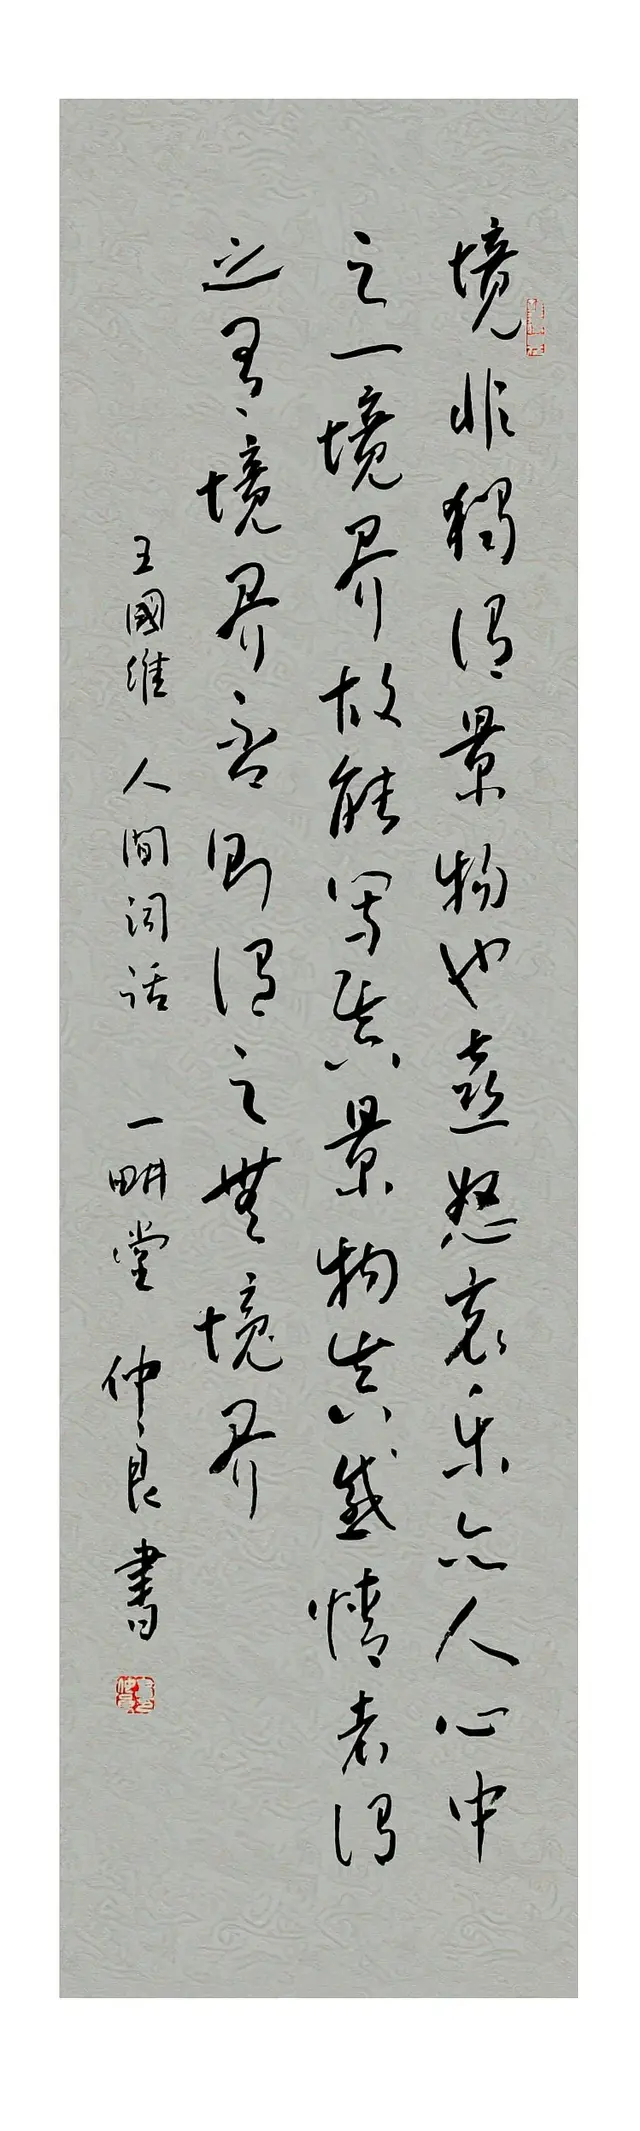 境非獨謂景物也喜怒哀乐亦人心中
之一境界故能写真景物真感情者谓
之有境界否则谓之無境界
王國維 人間词话 一畊堂 仲良書